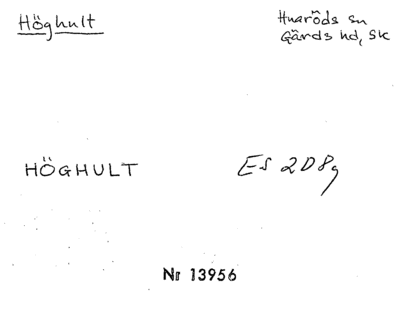 Höghult
Huaröds sn
Gärds hd, Sk
HÖGHULT
Es 2D8g
Nr 13956